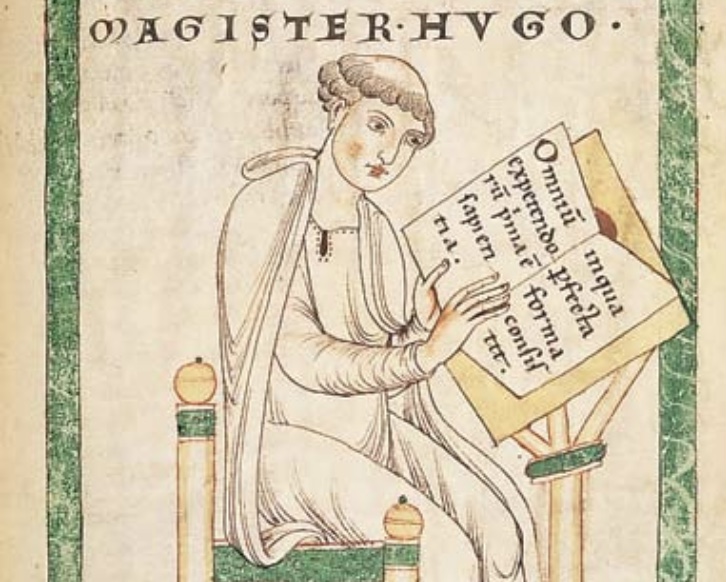 MAGISTER·HVGO·
Omniũ
expetendo
rũ p'ma ẽ
sapien
tia.
inqua
ꝑfecta
forma
consis
tit.